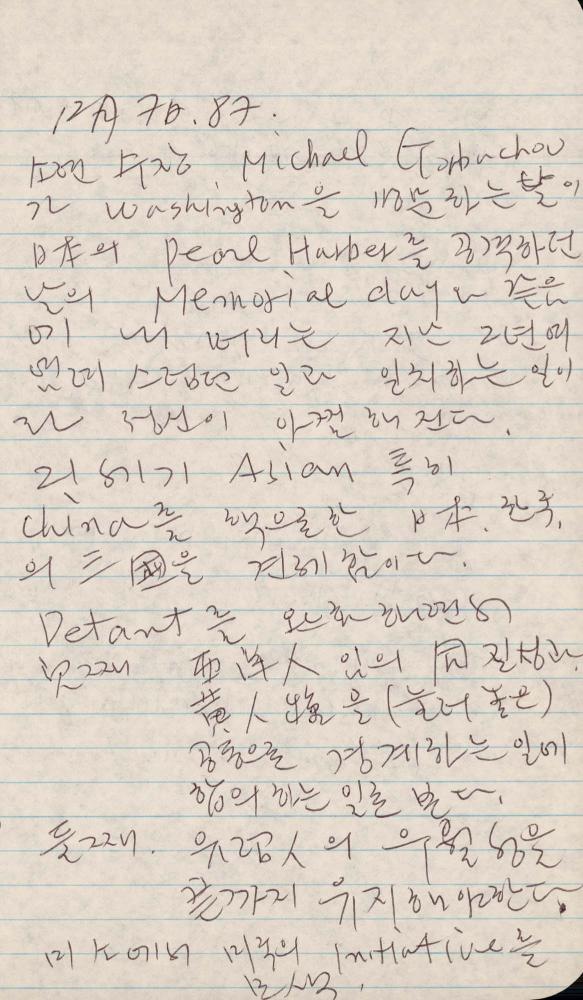 12月 7日. 87.
소련 수장 Michael Gorbachov
가 Washington을 방문하는 날이
日本의 Pearl Harber를 공격하던
날의 Memorial day과 같음
에 내 머리는 지난 2년여
일과 일치하는 일이
라 정신이 아찔 해 진다.
21세기 Asian 특히
China를 핵으로한 日本, 한국,
의 三國을 견제 함이다.
Detant를 완화 하면서
첫째 西洋人 임의 同질성과
黃人種을 (눌러 놓은)
공동으로 경계하는 일에
합의 하는 일로 본다.
둘째. 유럽人의 우월성을
끝까지 유지해야한다.
미 소에서 미국의 initiative를
모색.